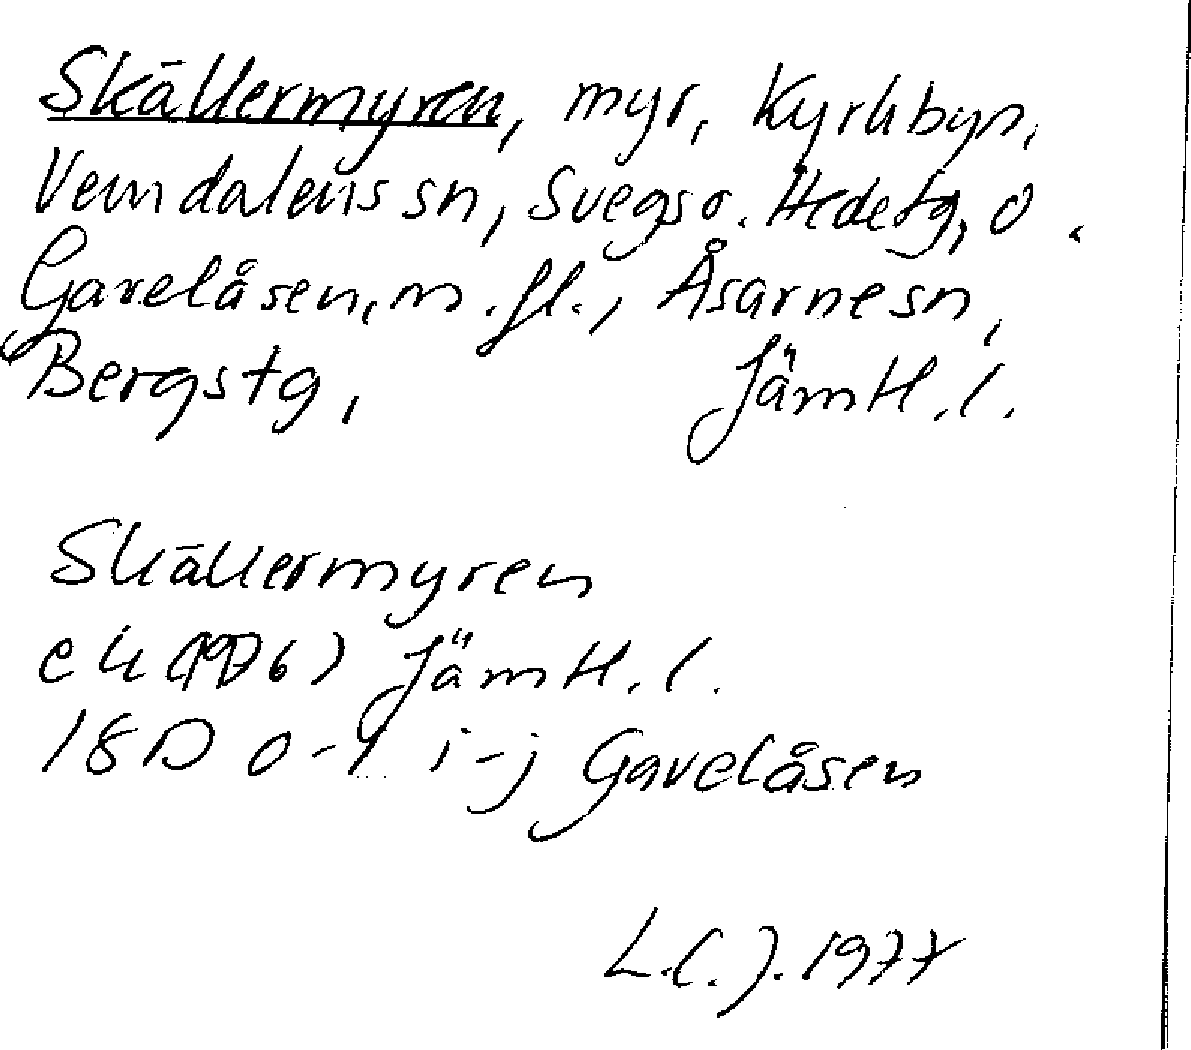 Skällermyren, myr, Kyrkbyn,
Vemdalens sn, Svegs o. Hede tg, o.
Gavelåsen, m. fl., Åsarne sn,
Bergs tg, Jämtl. l.
Skällermyren
ek (1976) Jämtl. l.
18D 0-1 i-j Gavelåsen
L.C.J. 1977